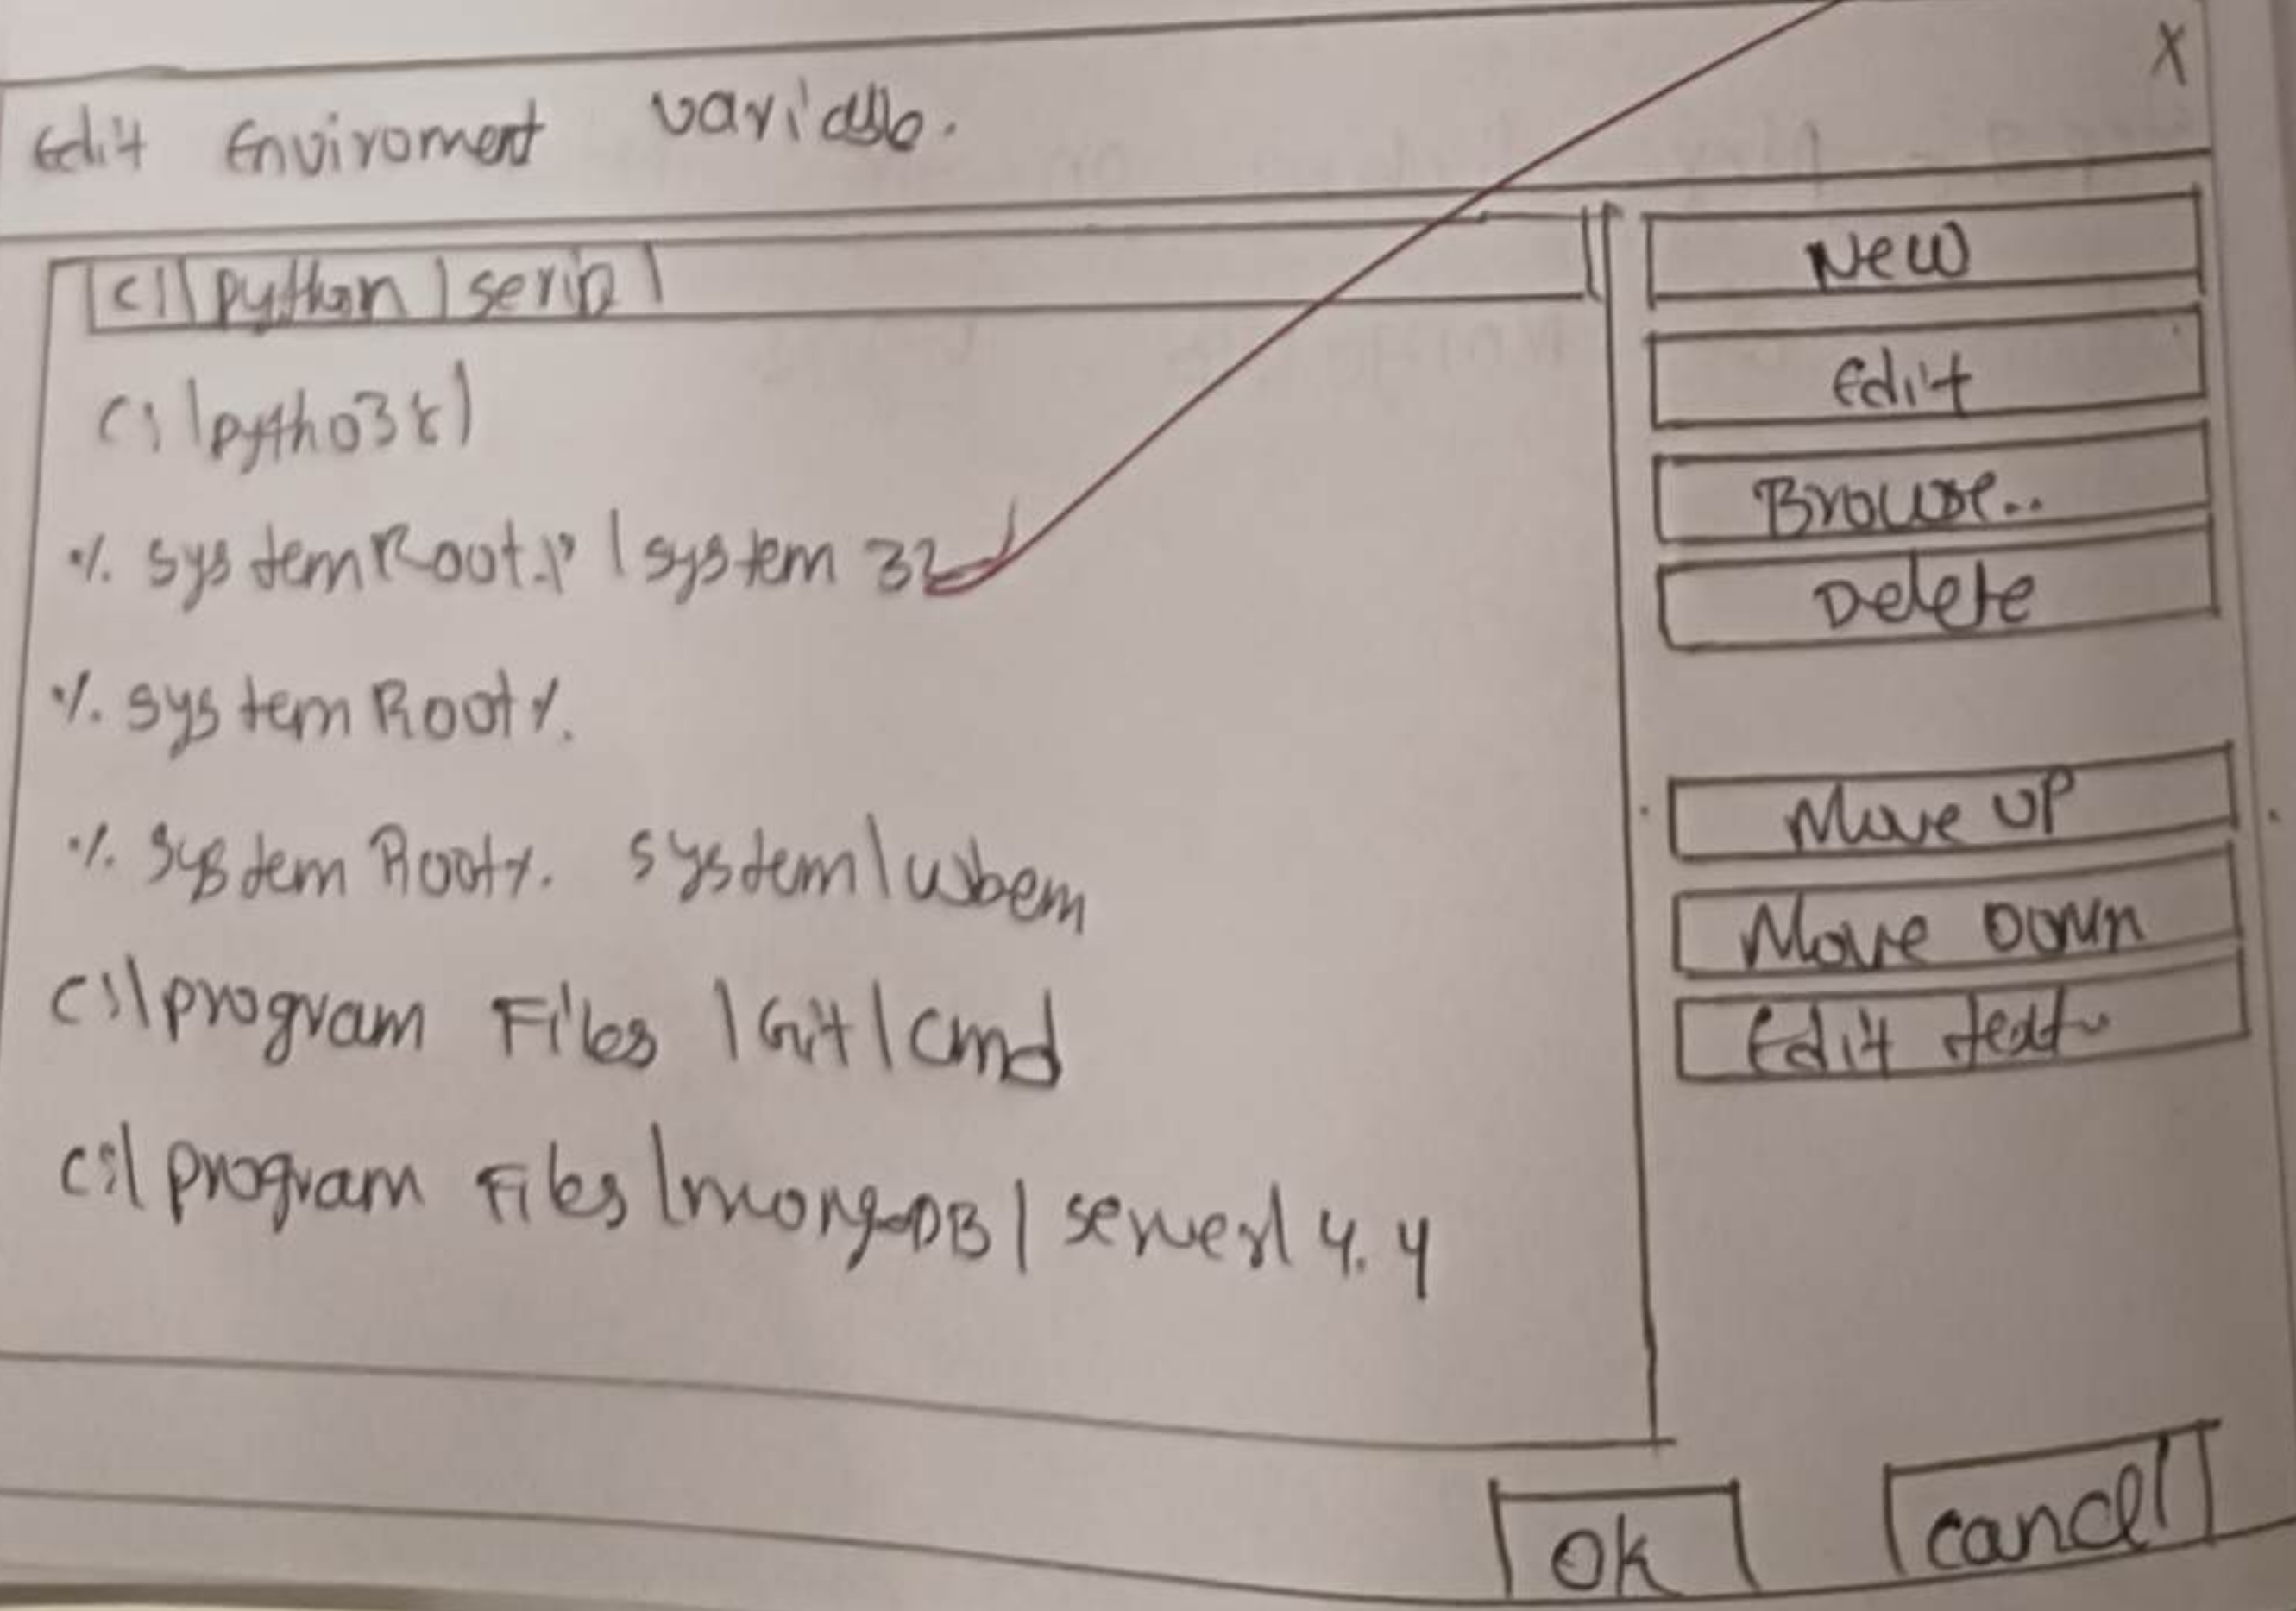 X
Edit Enviroment variable.
C:\\python\scrip\
C:\pytho38\
% systemRoot% \system 32
% system Root%.
% System Root%. system\wbem
C:\program Files \Git\cmd
C:\program Files \mongoDB\ server\ 4.4
New
Edit
Browse..
Delete
Move UP
Move Down
Edit text
Ok
cancel